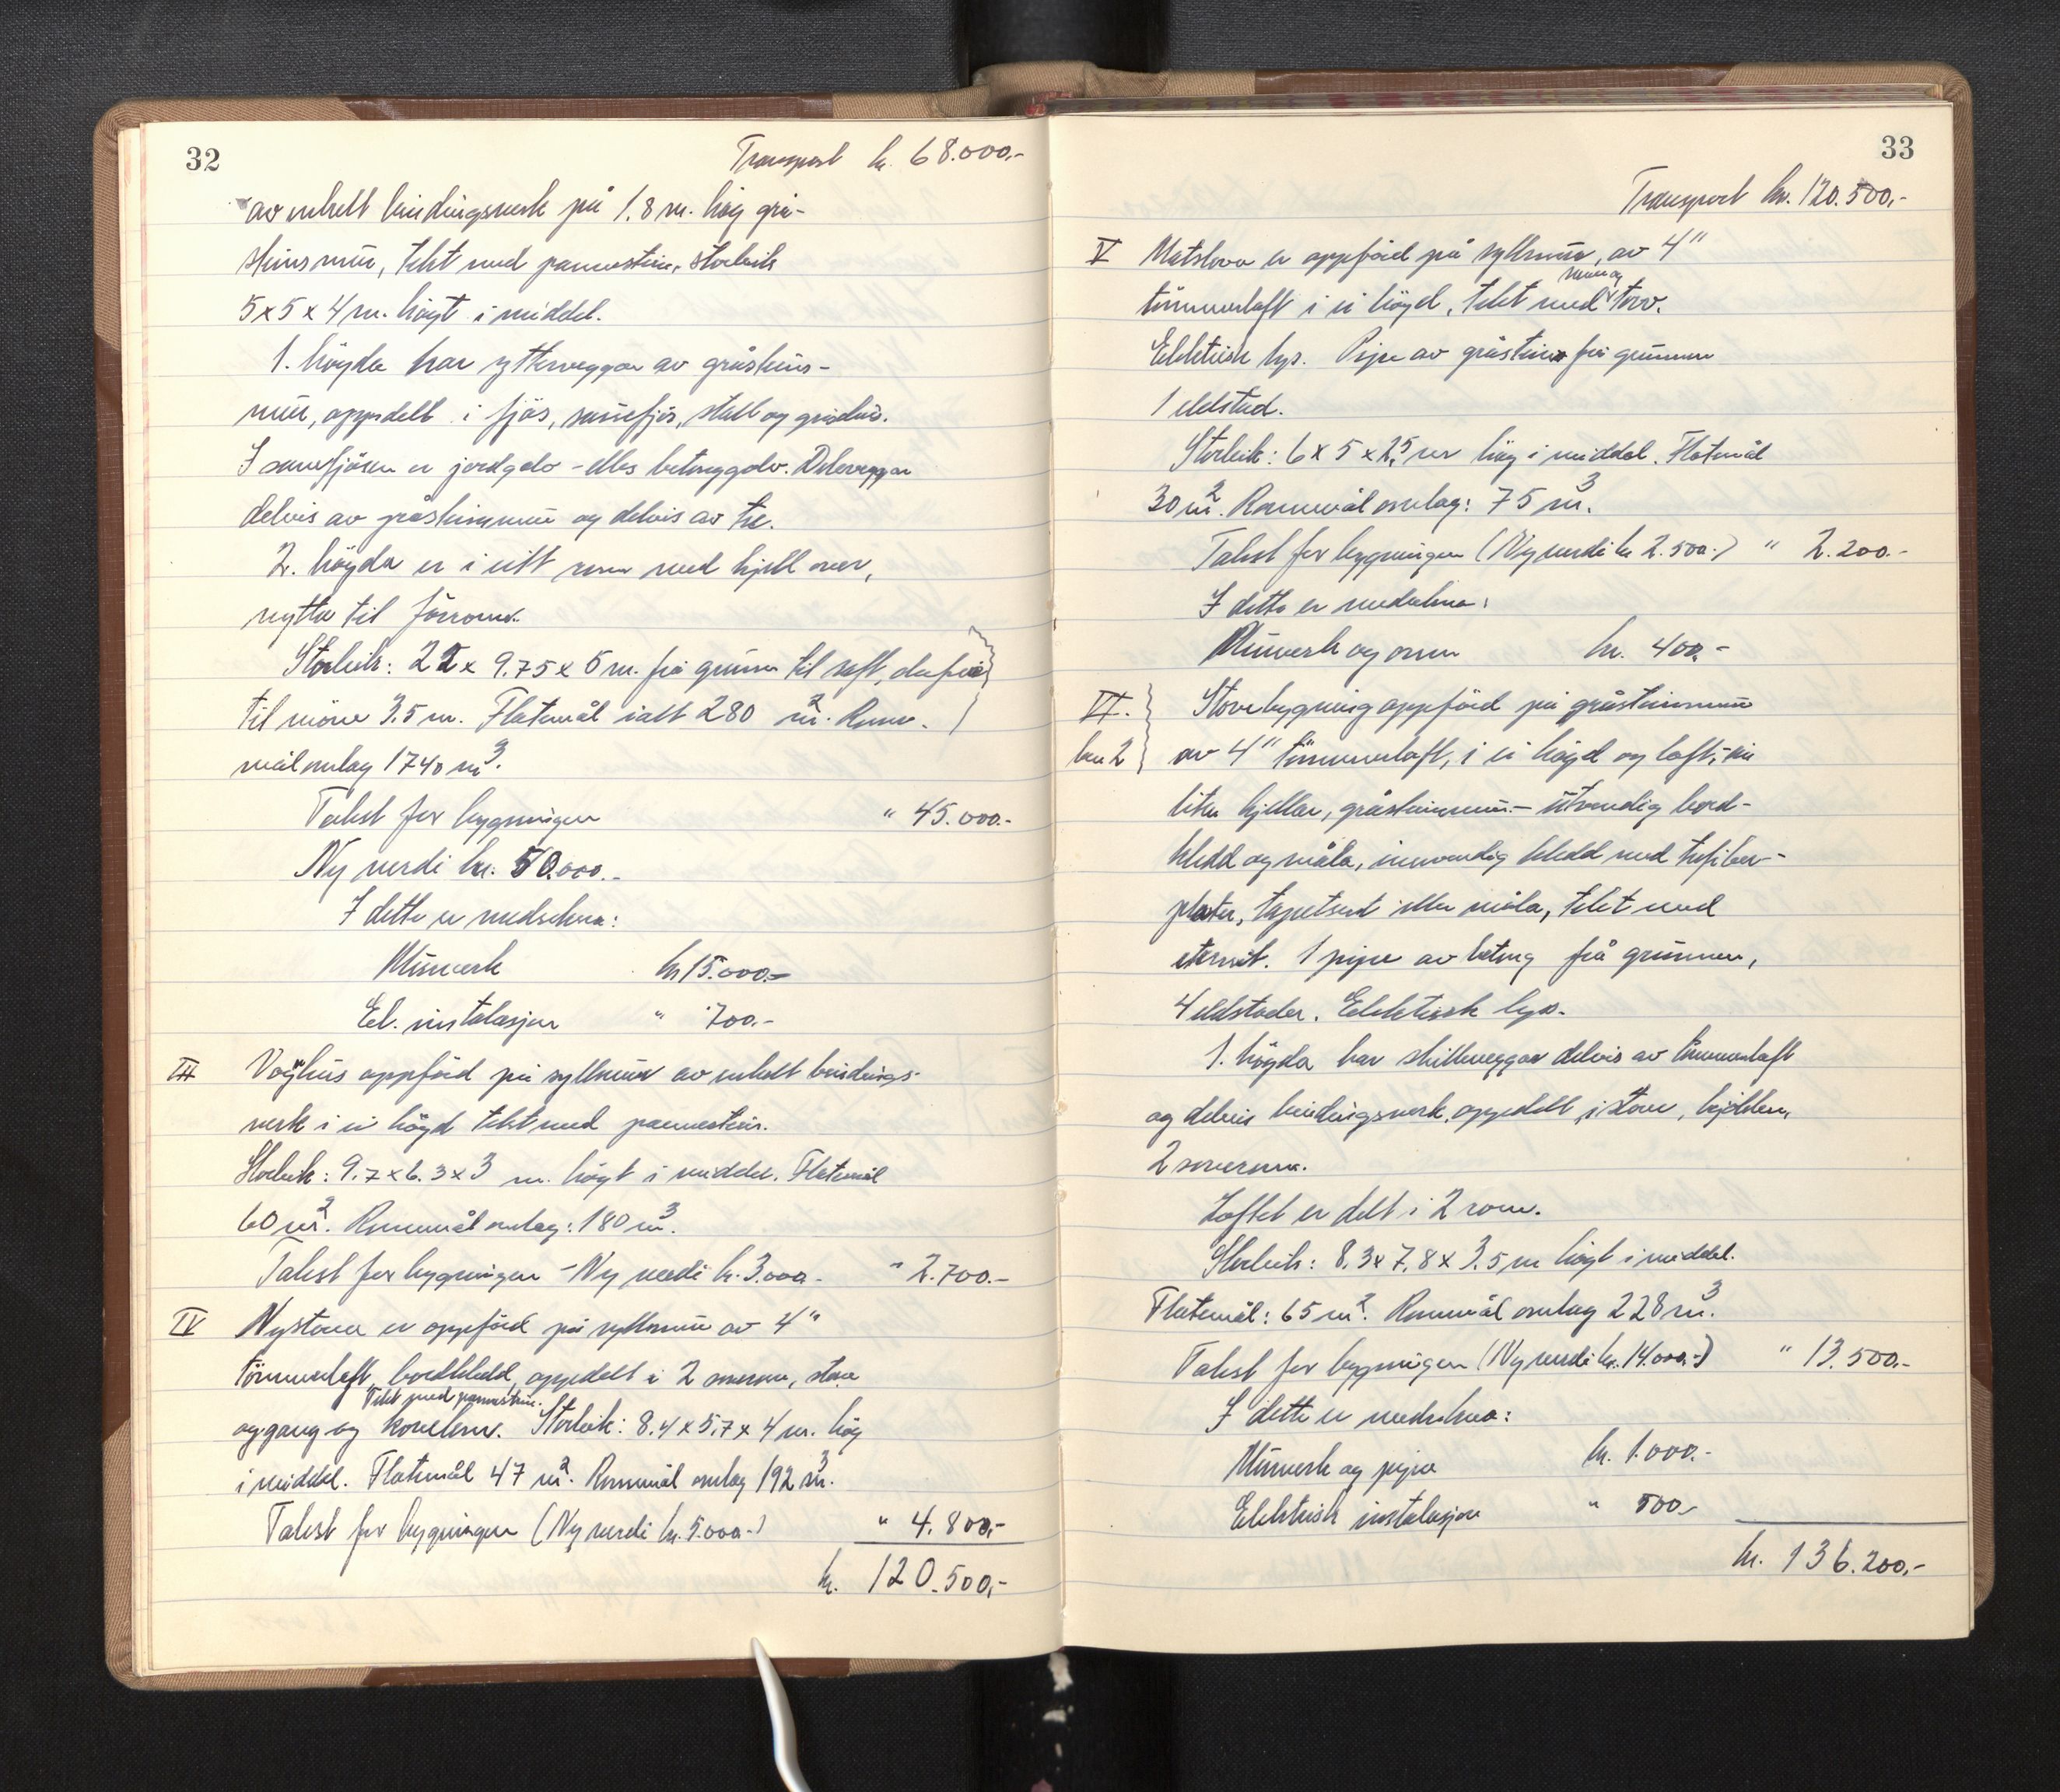 32
Transport kr. 68.000,-
av enkelt bindingsverk på 1.8 m. høg grå-
steinsmur, tekt med pannestein, storleik
5 x 5 x 4 m. högt i middel.
1. högda har ytterveggar av gråsteins-
mur, oppdelt i fjös, sauefjös, stall og grisehus.
I sauefjösen er jordgolv - elles betonggolv. Deleveggar
delvis av gråsteinsmur og delvis av tre.
2. högda er i eitt rom med hjell over,
nytta til fôrrom.
Storleik: 22 x 9.75 x 5 m. frå grunn til raft, derfrå
til möne 3.5 m. Flatemål ialt 280 m². Rom-
mål omlag 1740 m³.
Takst for bygningen " 45.000.-
Ny verdi kr. 50.000.-
I dette er medrekna:
Murverk kr 15.000.-
El. instalasjon " 700.-
III Våghus oppförd på syllmur av enkelt bindings-
verk i ei högd tekt med pannestein.
Storleik: 9.7 x 6.3 x 3 m. högt i middel. Flatemål
60 m². Rommål omlag: 180 m³.
Takst for bygningen - Ny verdi kr. 3.000.- " 2.700.-
IV Nystova er oppförd på syllmur av 4"
tömmerlaft, bordkledd, oppdelt i 2 soverom, stove
Tekt med pannestein.
og gang og kove. Storleik: 8.4 x 5.7 x 4 m. høg
i middel. Flatemål 47 m². Rommål omlag 192 m³.
Takst for bygningen (Ny verdi kr. 5.000.-) " 4.800,-
kr. 120.500,-
33
Transport kr. 120.500,-
V Matstova er oppförd på syllmur, av 4"
never og
tömmerlaft i ei högd, tekt med torv.
Elektrisk lys. Pipe av gråstein frå grunnen
1 eldstad.
Storleik: 6 x 5 x 2,5 m høg i middel. Flatemål
30 m². Rommål omlag: 75 m³.
Takst for bygningen (Ny verdi kr 2.500.-) " 2.200.-
I dette er medrekna:
Murverk og omn kr. 400.-
VI. Stovebygning oppförd på gråsteinsmur
bnr 2 av 4" tömmerlaft, i ei högd og loft, ein
liten kjellar, gråsteinsmur. - Utvendig bord-
kledd og måla, innvendig kledd med trefiber-
plater, tapetsert eller måla, tekt med
eternit. 1 pipe av betong frå grunnen,
4 eldstader. Elektrisk lys.
1. högda har skilleveggar delvis av tömmerlaft
og delvis bindingsverk, oppdelt i stove, kjökken,
2 soverom.
Loftet er delt i 2 rom.
Storleik: 8,3 x 7,8 x 3.5 m högt i middel.
Flatemål: 65 m². Rommål omlag 228 m³.
Takst for bygningen (Ny verdi kr. 14.000,-) " 13.500,-
I dette er medrekna:
Murverk og pipe kr. 1.000.-
Elektrisk instalasjon " 500,-
kr. 136.200,-